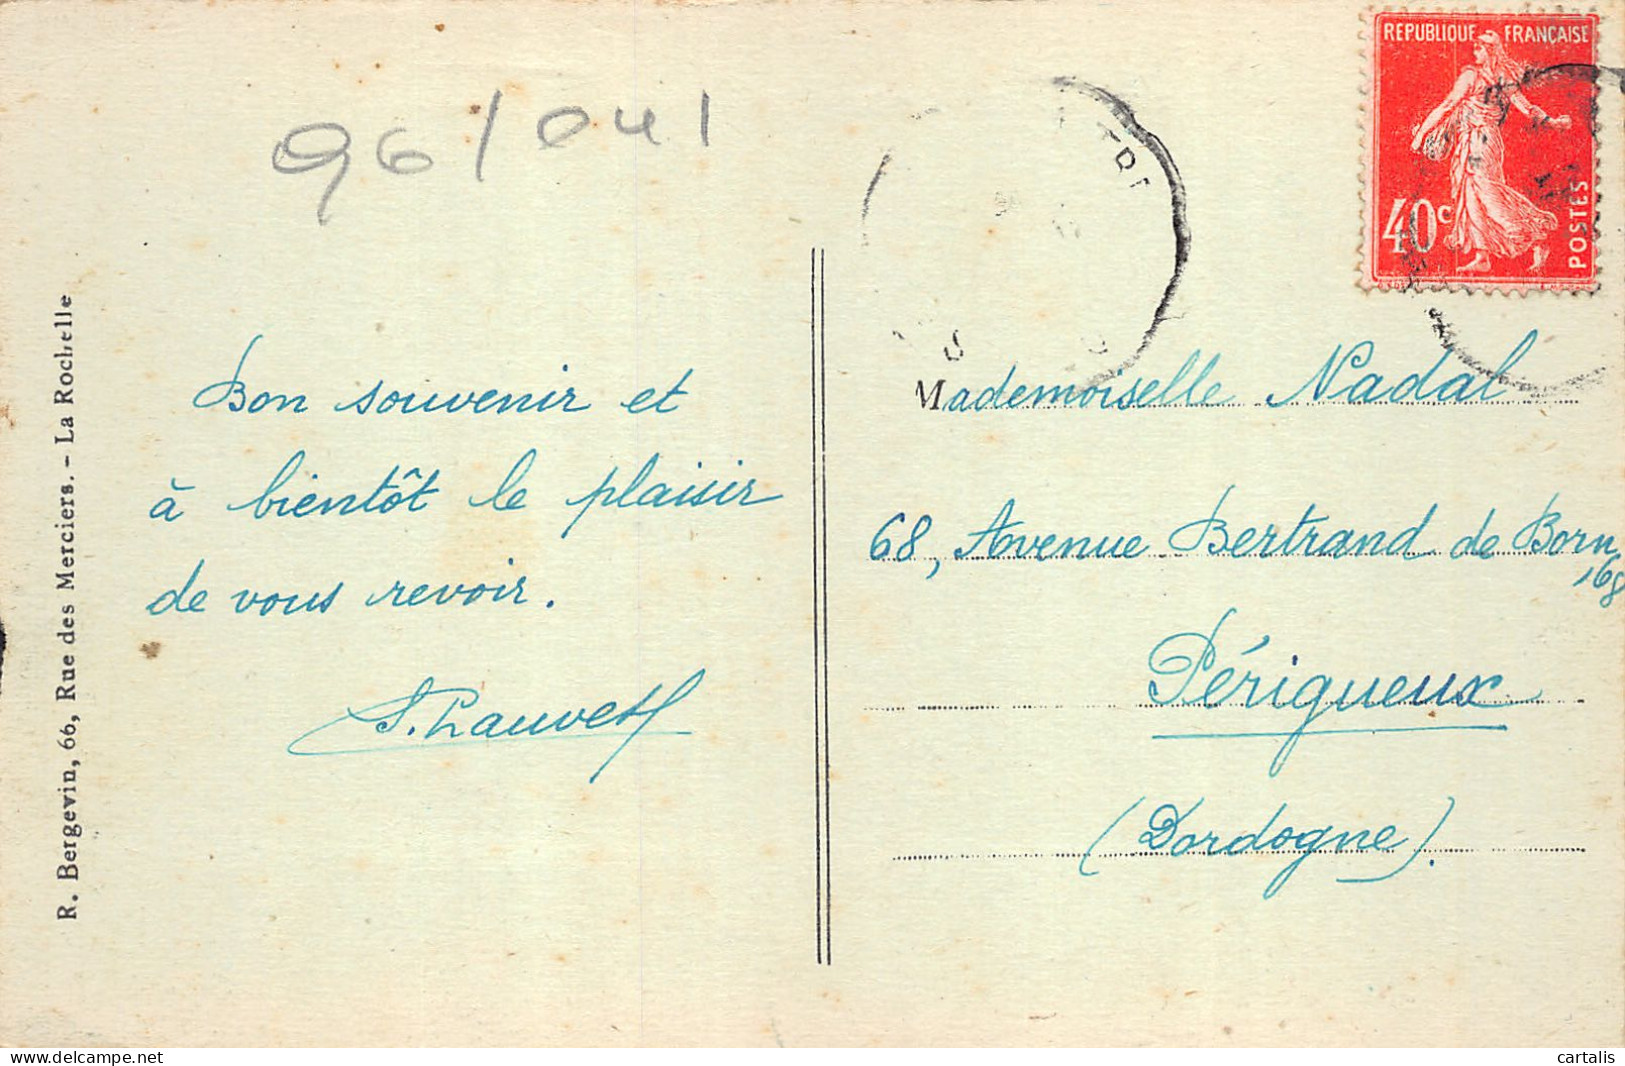 96/041
REPUBLIQUE FRANÇAISE
40c
POSTES
R. Bergevin, 66, Rue des Merciers. - La Rochelle
Bon souvenir et
à bientôt le plaisir
de vous revoir.
Mademoiselle Nadal
68, Avenue Bertrand de Born,
68
Périgueux
(Dordogne).
cartalis